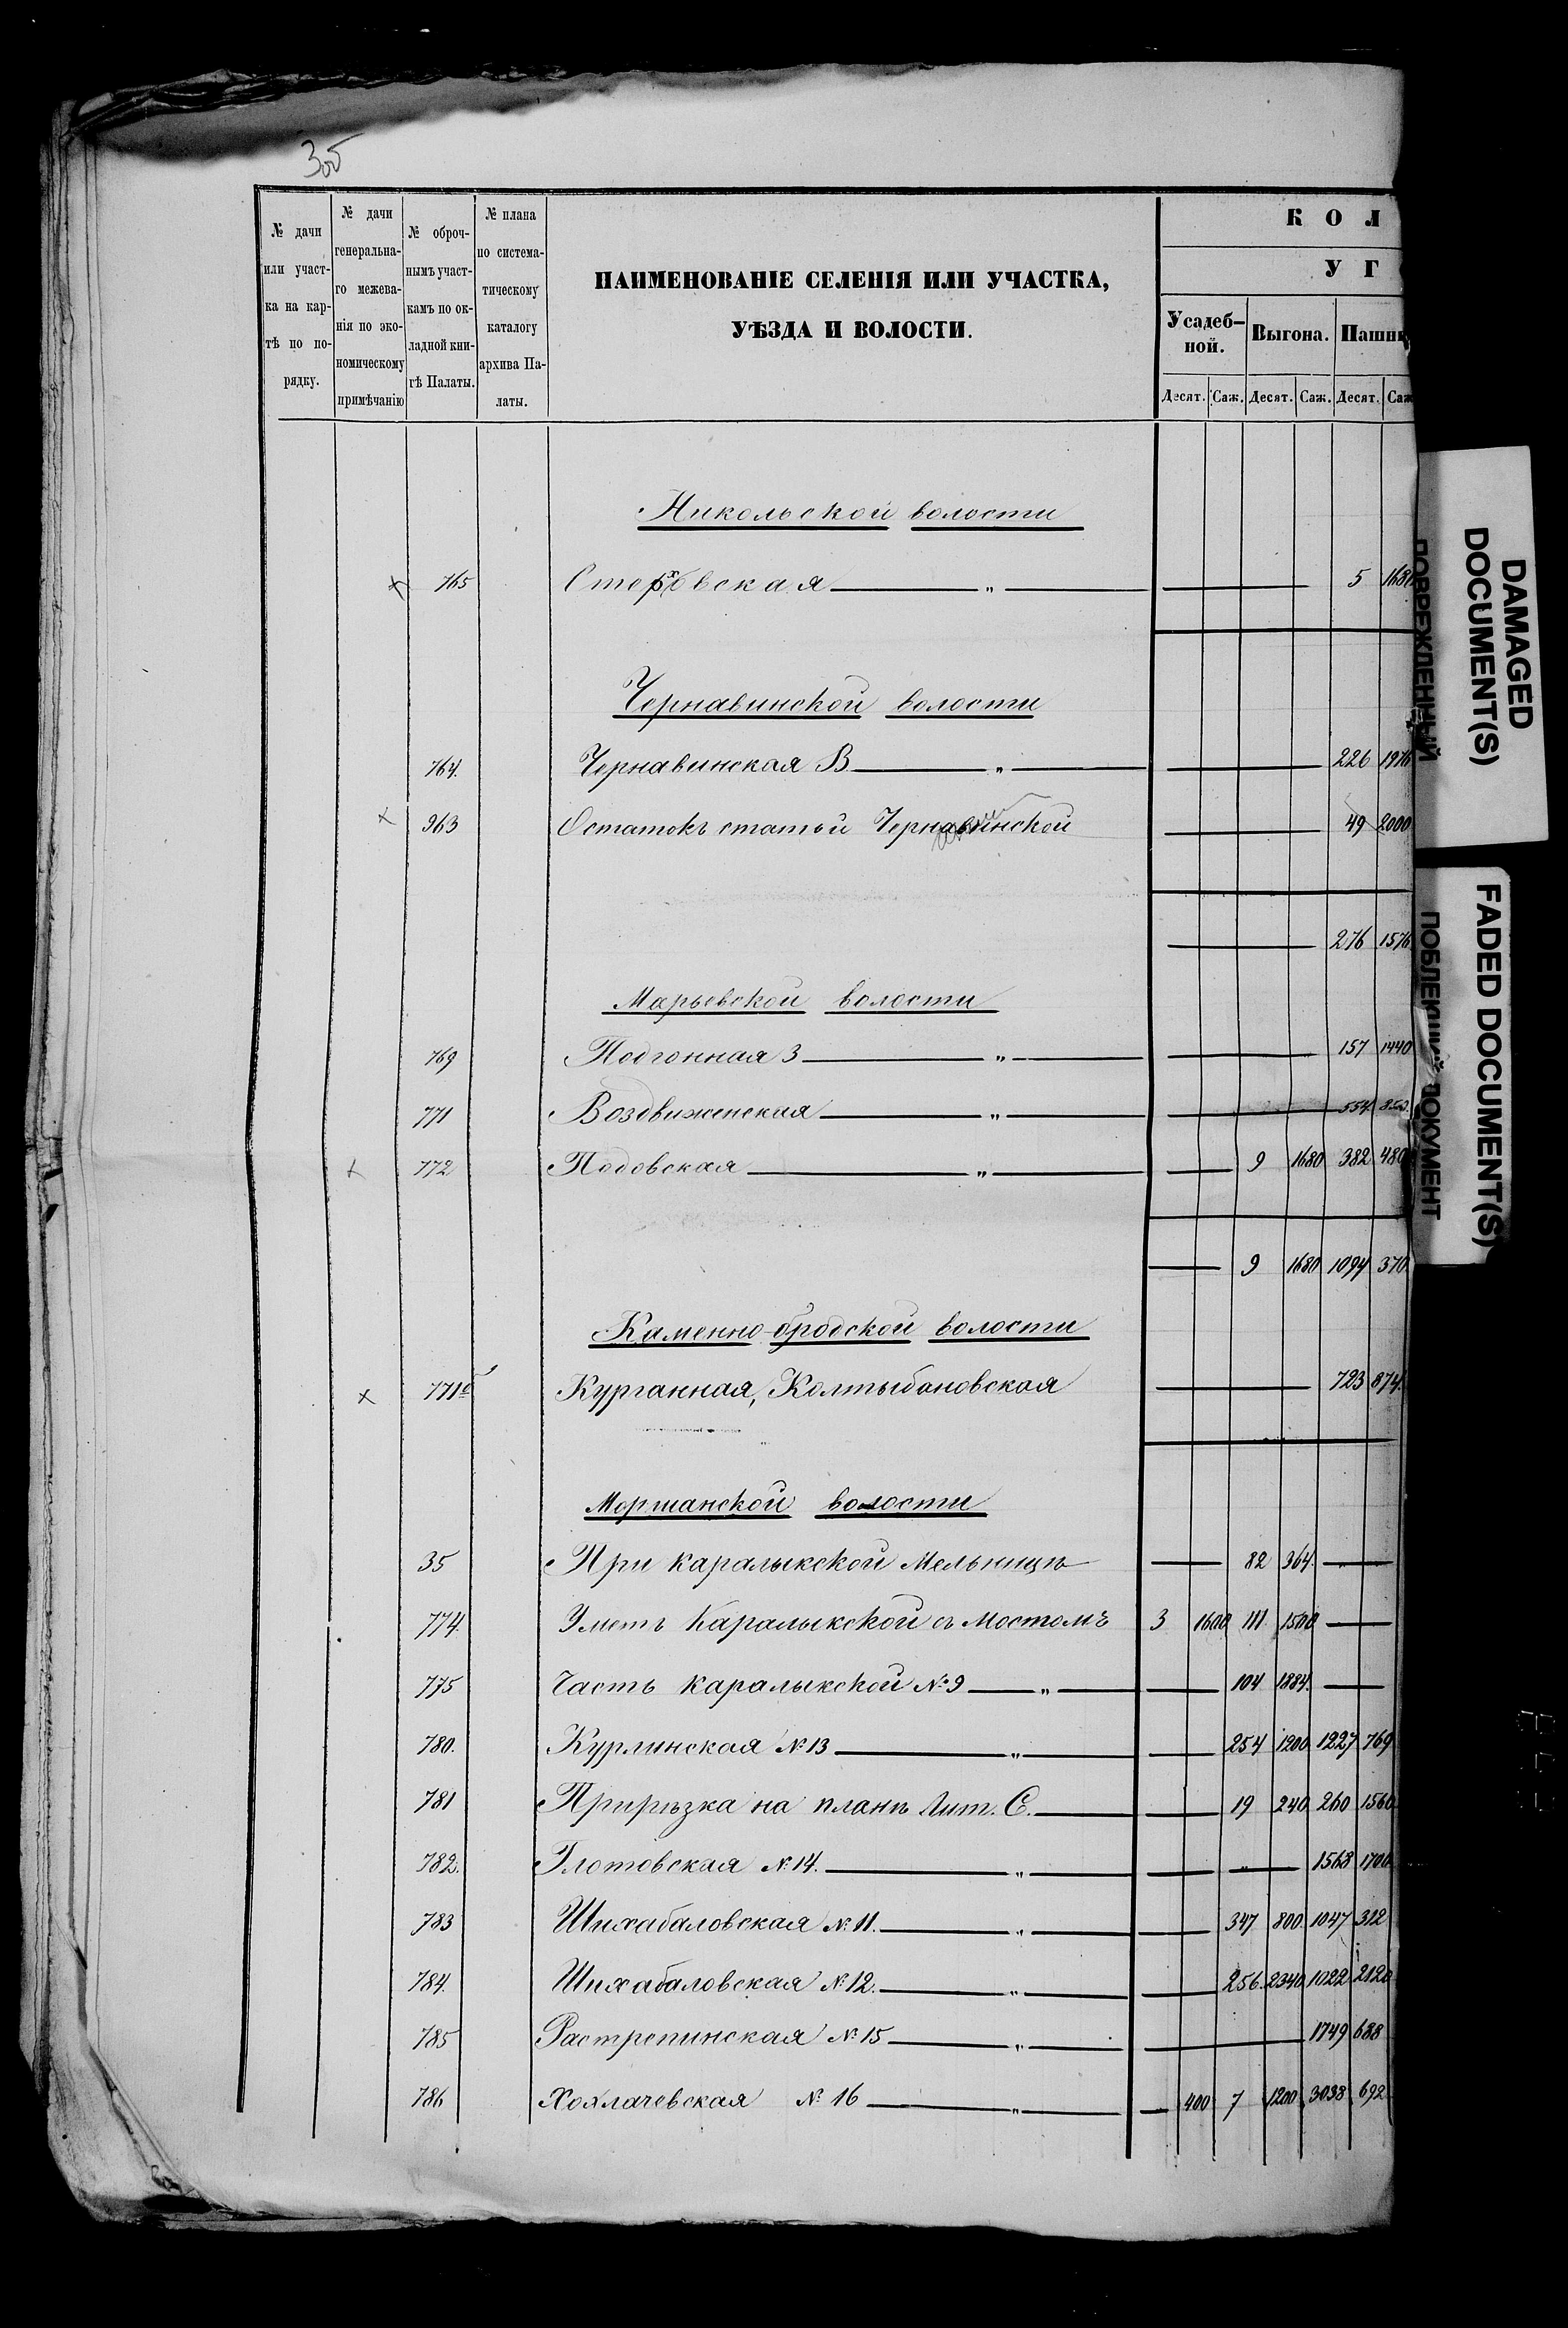 305
№ дачи или участ-ка на кар-тѣ по по-рядку.
№ дачи генеральна-го межева-нія по эко-номическому примѣчанію
№ оброч-нымъ участ-камъ по ок-ладной кни-гѣ Палаты.
№ плана по система-тическому каталогу архива Па-латы.
НАИМЕНОВАНІЕ СЕЛЕНІЯ ИЛИ УЧАСТКА,
УѢЗДА И ВОЛОСТИ.
КОЛ
УГ
Усадеб-ной. Выгона. Пашни
Десят. Саж. Десят. Саж. Десят. Саж
Никольской волости
х 765 Стерховская — „ — 5 168
Чернавинской волости
764. Чернавинская В — „ — 226 1976
х 963 Остатокъ статьи Чернавинской — 49 2000
— 276 1576
Марьевской волости
769 Подгонная 3 — „ — 157 1440
771 Воздвиженская — „ — 554 850.
х 772 Подовская — „ — 9 1680 382 480
— 9 1680 1094 370.
Каменно-бродской волости
х 771б Курганная, Колтыбановская — 723 874.
Моршанской волости
35 При Каралыкской Мельницѣ — 82 364. — „ —
774. Уметъ Каралыкской съ Мостомъ 3 1600 111 1500 —
775 Часть Каралыкской №9 — „ — 104 1884. —
780. Курлинская №13 — „ — 254 1200 1227 769
781 Прирѣзка на планѣ Лит. С. — 19 240 260 1560
782. Глотовская №14. — „ — „ — 1563 1700
783 Шихабаловская №11. — „ — 347 800 1047 312
784. Шихабаловская №12. — „ — 256. 2340 1022 2120
785 Растрепинская №15 — „ — 1749 688
786 Хохлачевская №16 — „ — 400 7 1200 3038 692
DAMAGED
DOCUMENT(S)
ПОВРЕЖДЕННЫЙ
FADED DOCUMENT(S)
ПОБЛЕКШИЙ ДОКУМЕНТ